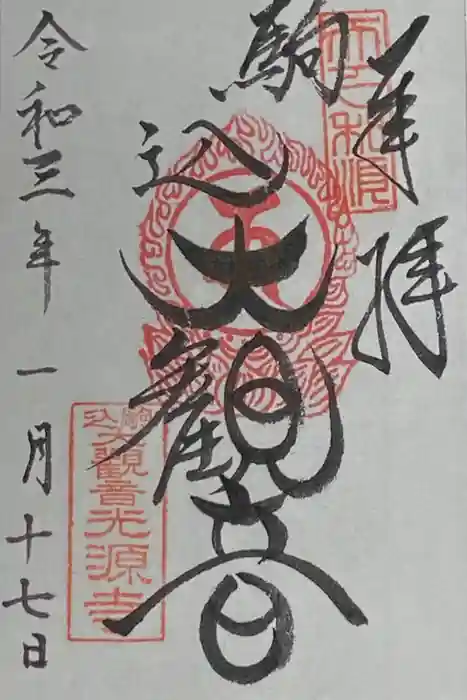 奉拝
駒込
大觀音
令和三年一月十七日
駒込
大觀音光源寺